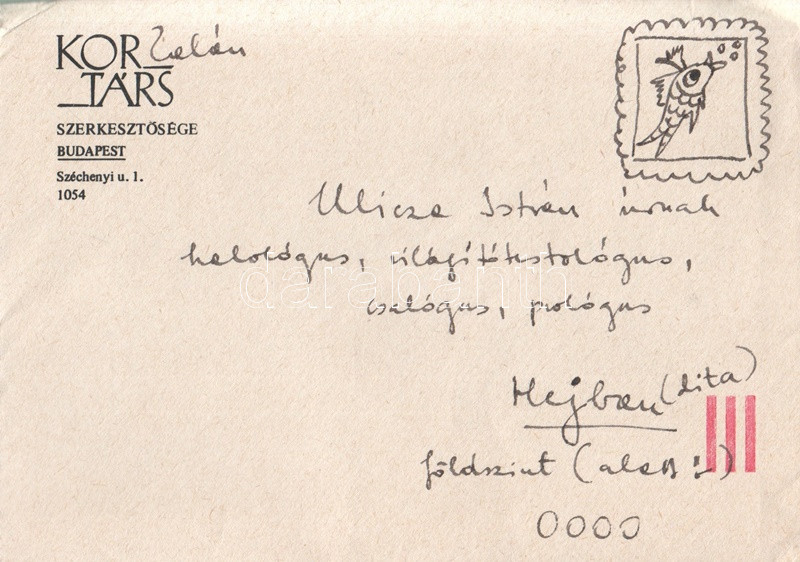 KOR Zalán
TÁRS
SZERKESZTŐSÉGE
BUDAPEST
Széchenyi u. 1.
1054
Ulicza István úrnak
halológus, világítótestológus,
csalógus, prológus
Hejban (dita)
földszint (alatt)
0000
darabanth